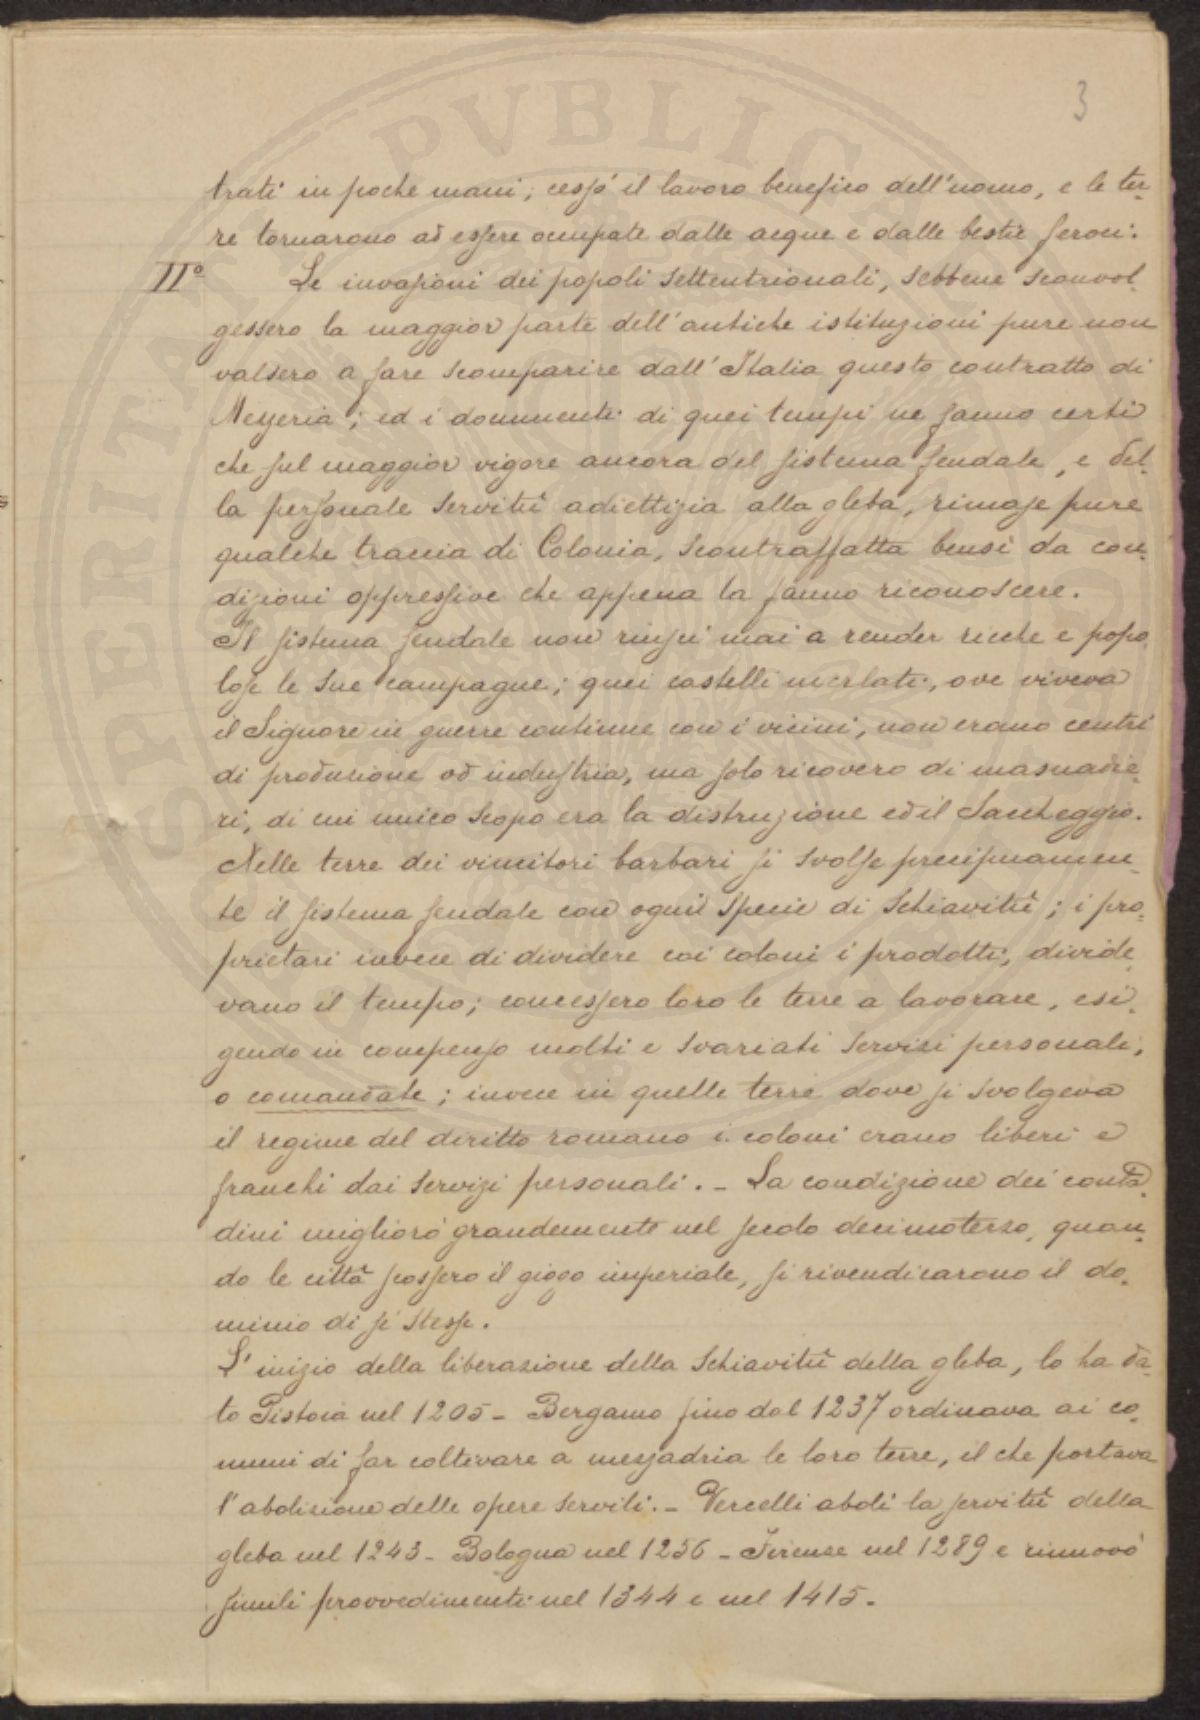 3
trati in poche mani; cessò il lavoro benefico dell'uomo, e le ter-
re tornarono ad essere occupate dalle acque e dalle bestie feroci.
II° Le invasioni dei popoli settentrionali, sebbene sconvol-
gessero la maggior parte dell'antiche istituzioni pure non
valsero a fare scomparire dall'Italia questo contratto di
Mezzeria; ed i documenti di quei tempi ne fanno certi
che sul maggior vigore ancora del sistema feudale, e del-
la personale servitù adiettizia alla gleba, rimase pure
qualche traccia di Colonia, scontraffatta bensì da con-
dizioni oppressive che appena la fanno riconoscere.
Il sistema feudale non riuscì mai a render ricche e popo-
lose le sue campagne; quei castelli merlati, ove viveva
il Signore in guerre continue con i vicini, non erano centri
di produzione od industria, ma solo ricovero di masnadie-
ri, di cui unico scopo era la distruzione ed il saccheggio.
Nelle terre dei vincitori barbari si svolse precipuamen-
te il sistema feudale con ogni specie di schiavitù; i pro-
prietari invece di dividere coi coloni i prodotti, divide-
vano il tempo; concessero loro le terre a lavorare, esi-
gendo in compenso molti e svariati servizi personali,
o comandate; invece in quelle terre dove si svolgeva
il regime del diritto romano i coloni erano liberi e
franchi dai servizi personali. - La condizione dei conta-
dini migliorò grandemente nel secolo decimoterzo, quan-
do le città scossero il giogo imperiale, si rivendicarono il do-
minio di sé stesse.
L'inizio della liberazione della schiavitù della gleba, lo ha da-
to Pistoia nel 1205 - Bergamo fino dal 1237 ordinava ai co-
muni di far coltivare a mezzadria le loro terre, il che portava
l'abolizione delle opere servili. - Vercelli abolì la servitù della
gleba nel 1243 - Bologna nel 1256 - Firenze nel 1289 e rinnovò
simili provvedimenti nel 1344 e nel 1415.